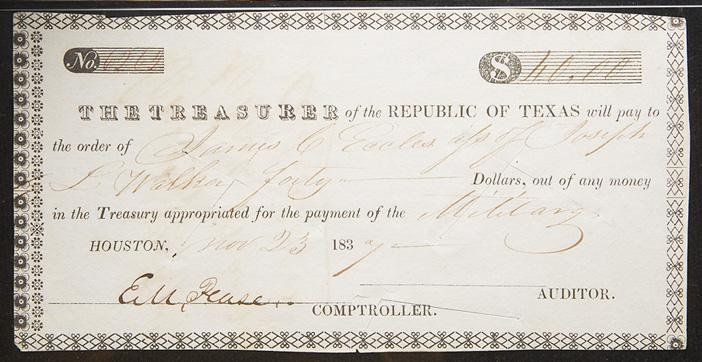 No.
$ 40.00
THE TREASURER of the REPUBLIC OF TEXAS will pay to
the order of James C Eccles ass of Joseph
L Walker forty Dollars, out of any money
in the Treasury appropriated for the payment of the Military
HOUSTON, Nov 23 1837
E M Pease
AUDITOR.
COMPTROLLER.